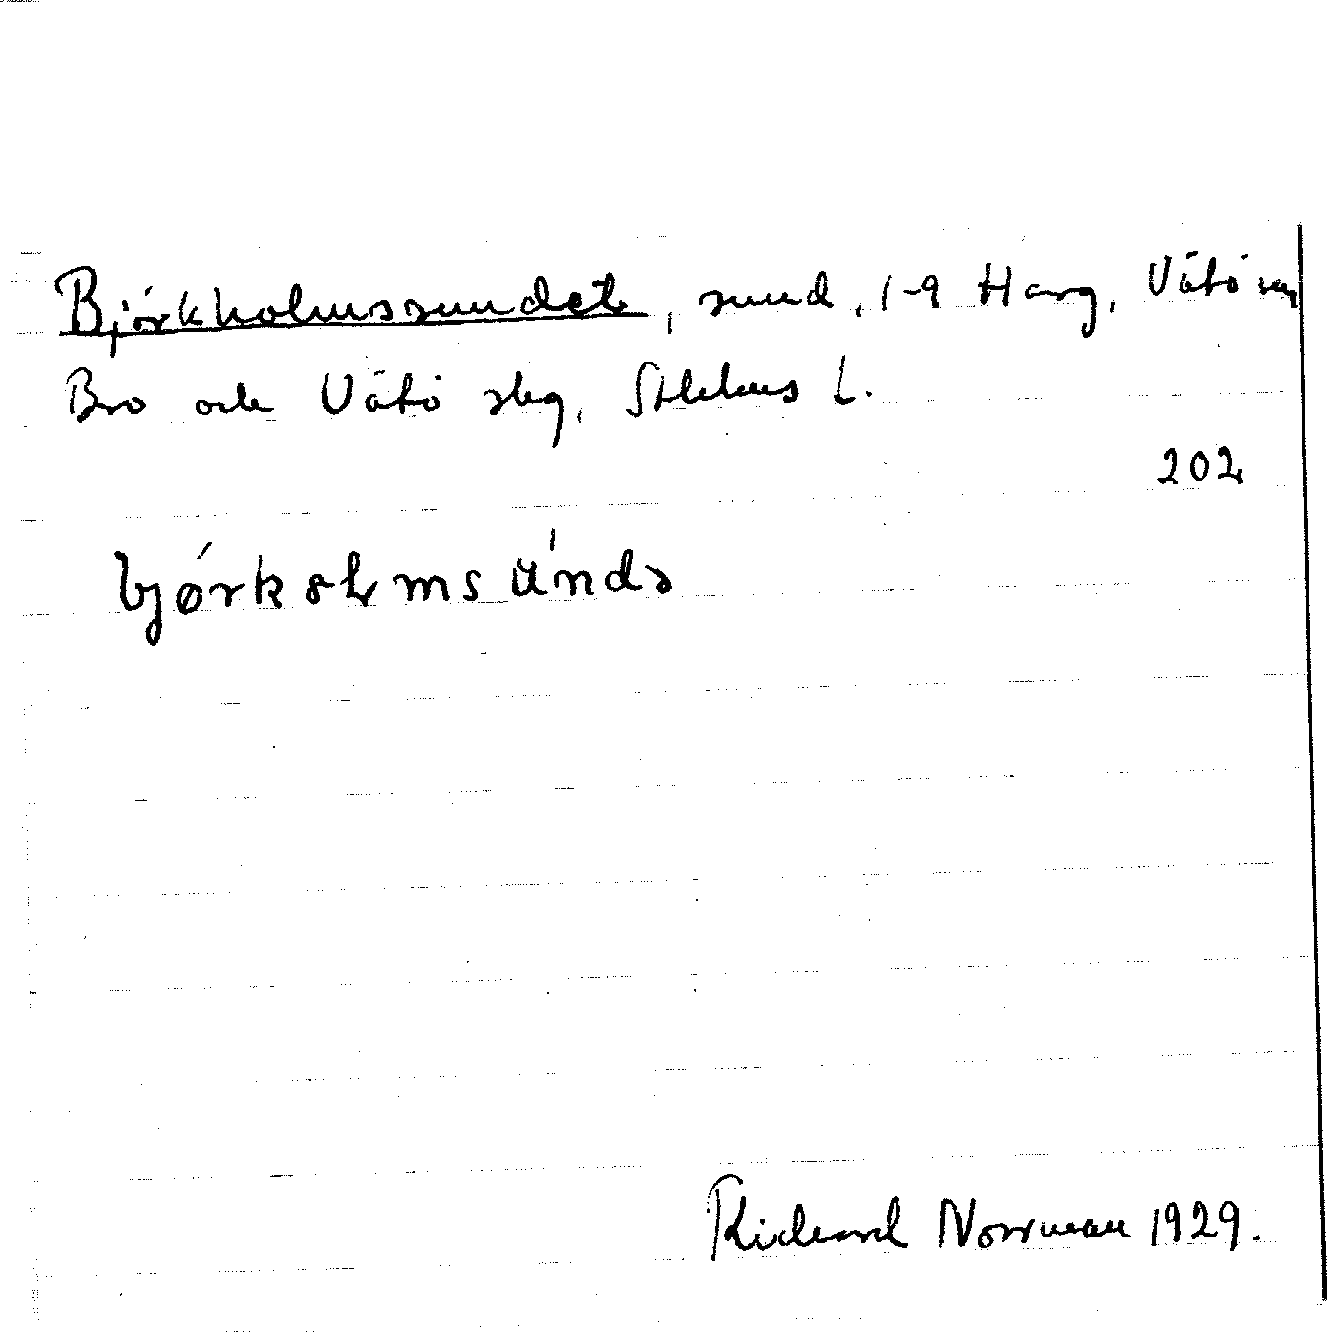 Björkholmssundet, sund, 1-9 Harg, Vätö sn
Bro och Vätö skg, Sthlms L.
202
bjørkɔlmsùndə
Richard Norrman 1929.